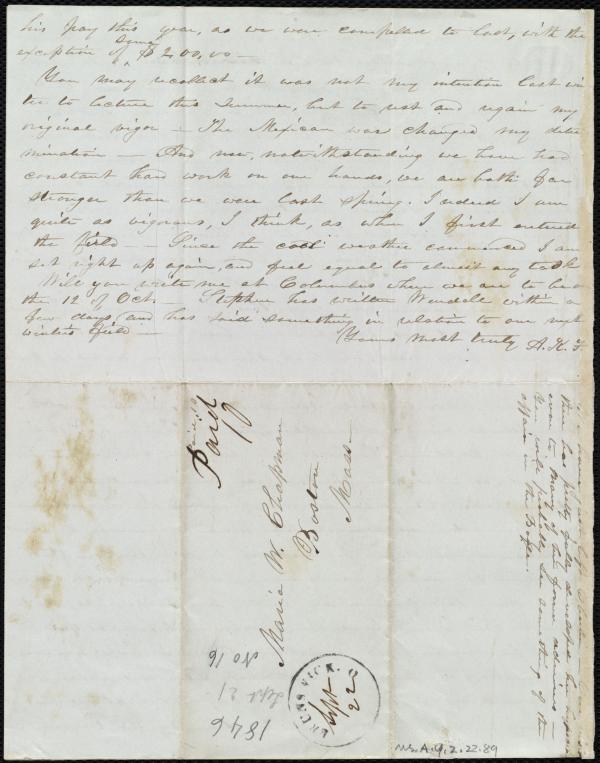 his pay this year, as we were compelled to last, with the
exception of some $200,00 —
You may recollect it was not my intention last win
ter to lecture this Summer, but to rest and regain my
original vigor — The Mexican war changed my deter
mination — And now, notwithstanding we have had
constant hard work on our hands, we are both far
stronger than we were last spring. Indeed I am
quite as vigorous, I think, as when I first entered
the field — Since the cool weather commenced I am
set right up again, and feel equal to almost any task
Will you write me at Columbus where we are to be on
the 12 of Oct. — Stephen has written Wendell within a
few days and has said something in relation to our next
winters field —
Yours most truly A.K.F.
there has pretty fully
even to many of her former admirers —
You will probably see something of the
affair in the Bugle.
Paid
10
Maria W. Chapman
Boston
Mass
BRUNSWICK. O
Sept
22
No 16
Sept 21
1846
Ms.A.9.2.22.89